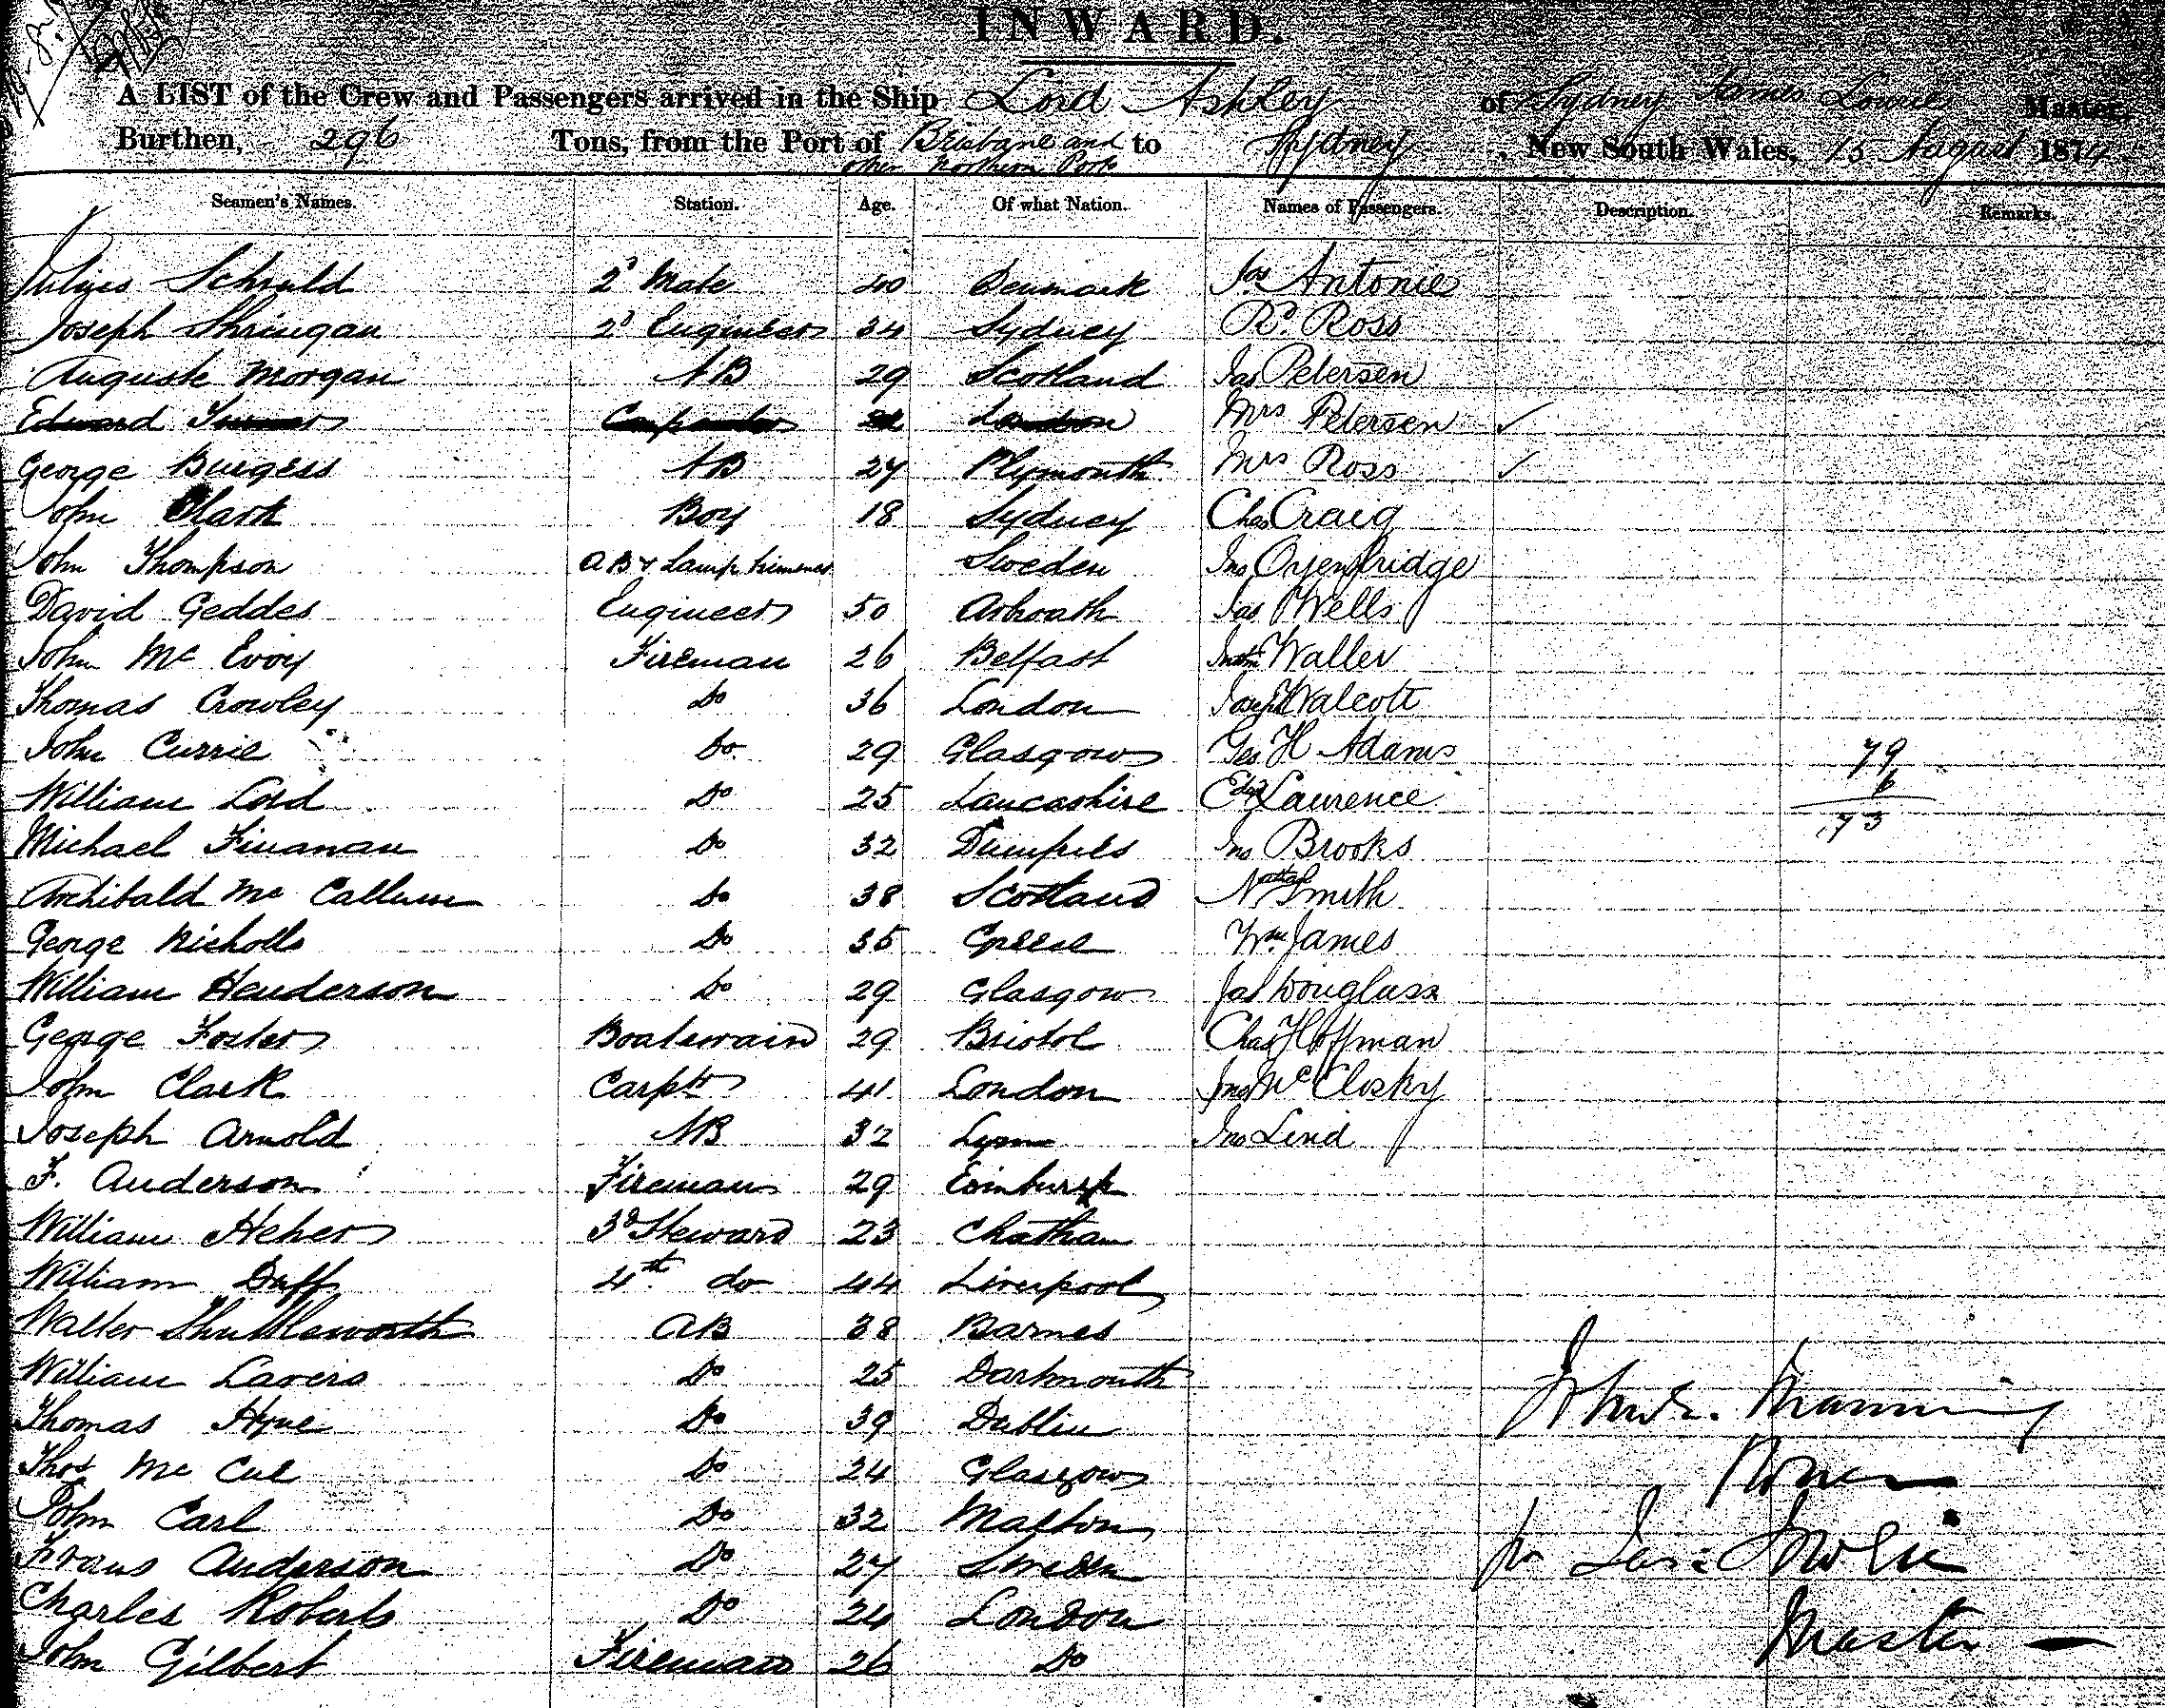 INWARD.
A LIST of the Crew and Passengers arrived in the Ship Lord Ashley of Sydney James Lowrie Master,
Burthen, 296 Tons, from the Port of Brisbane and other Northern Ports to Sydney, New South Wales, 15 August 1874
Seamen's Names. Station. Age. Of what Nation. Names of Passengers. Description. Remarks.
Julius Schuld 2d Mate 40 Denmark Jas Antonie
Joseph Shringan 2d Engineer 34 Sydney Rd. Ross
Auguste Morgan AB 29 Scotland Jas Petersen
Edward Turner Carpenter London Mrs Petersen ✓
George Burgess AB 27 Plymouth Mrs Ross ✓
John Clark Boy 18 Sydney Chas Craig
John Thompson AB & Lamp trimmer Sweden Jno Oxenbridge
David Geddes Engineer 50 Arbroath Jas Wells
John Mc Evoy Fireman 26 Belfast Waller
Thomas Crowley Do 36 London Joseph Walcott
John Currie Do 29 Glasgow Geo H Adams 79
William Lord Do 25 Lancashire Edwd Laurence 6
Michael Finanan Do 32 Dumfries Jno Brooks 73
Archibald Mc Callum Do 38 Scotland Smith
George Nicholls Do 35 Greece Wm. James
William Henderson Do 29 Glasgow Jas Douglass
George Foster Boatswain 29 Bristol Chas Hoffman
John Clark Carptr 41 London Jno McClosky
Joseph Arnold AB 32 Lynn Jno Lind
F. Anderson Fireman 29 Edinburgh
William Heher 3d Steward 23 Chatham
William Duff 4th do 44 Liverpool
Walter Shuttleworth AB 38 Barnes
William Lavers Do 25 Dartmouth
Thomas Hyne Do 39 Dublin
Thos Mc Cue Do 24 Glasgow
John Carl Do 32 Malton
Frans Anderson Do 27 Sweden
Charles Roberts Do 24 London
John Gilbert Fireman 26 Do
Manning
for Jas Lowrie
Master